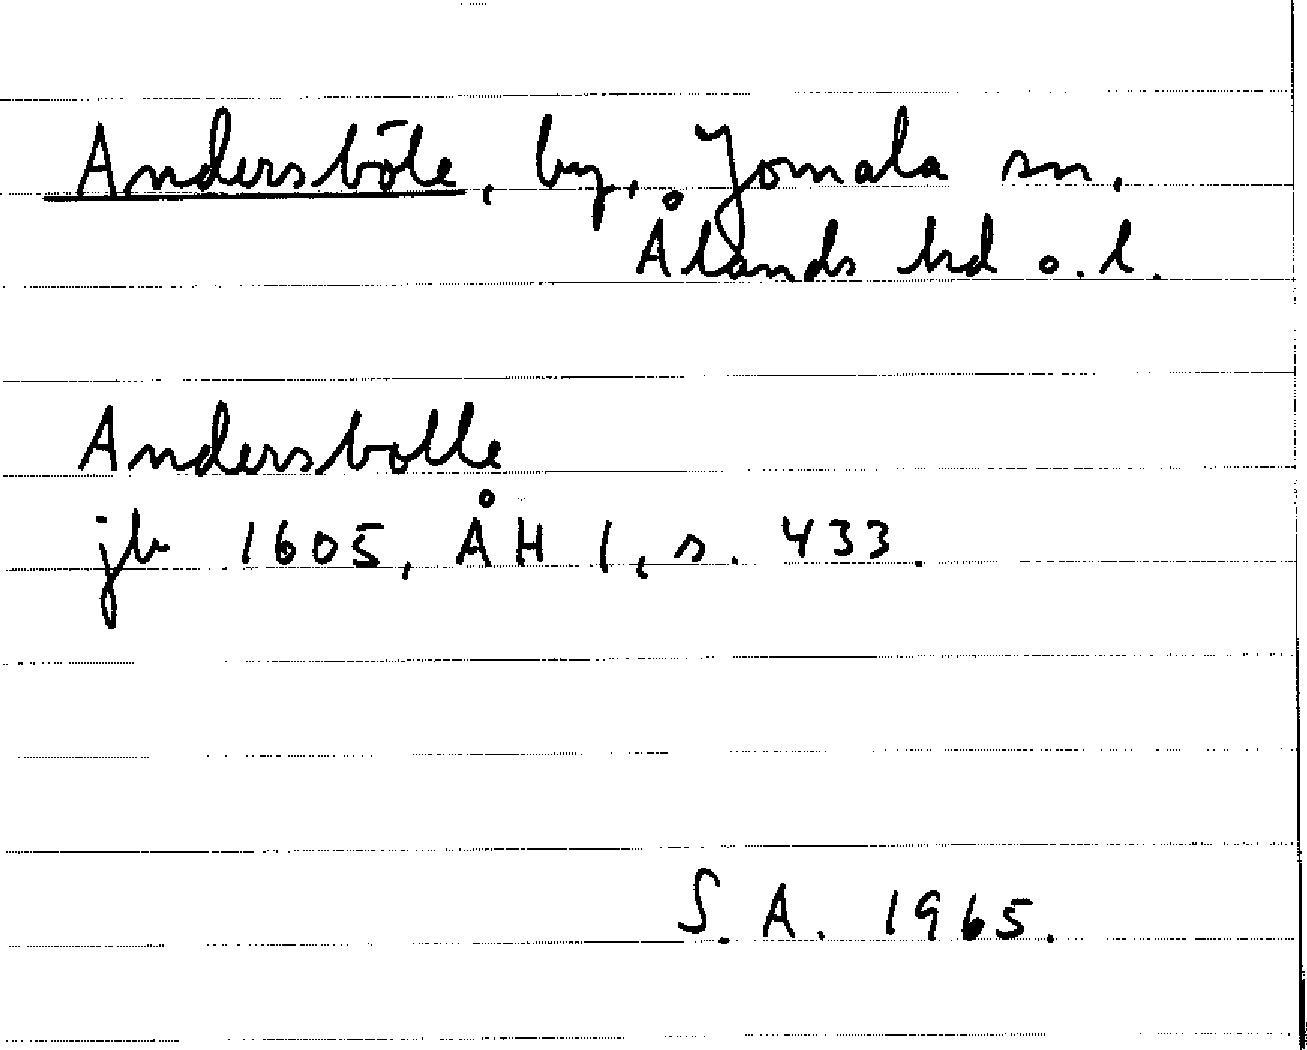 Andersböle, by, Jomala sn.
Ålands hd o. l.
Andersbolle
jb 1605, ÅH 1, s. 433.
S. A. 1965.